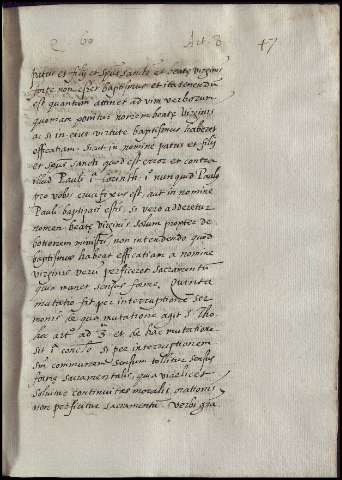 Q. 60 Art. 8 47
patris et filij et spũs sancti et beatę virginis
forte non esset baptismus et ita tenendũ
est quantum attinet ad vim verborum
quoniam ponitur nomen beatę virginis
ac si in eius virtute baptismus haberet
efficatiam. sicut in nomine patris et filij
et spũs sancti quod est error et contra
illud Pauli 1 corinth 1 nunquid Paulus
pro vobis crucifixus est, aut in nomine
Pauli baptizati estis, si vero adderetur
nomen beatę virginis solum propter de
votionem ministri, non intendendo quod
baptismus habeat efficatiam a nomine
virginis verũ perficeret sacramentũ
quia manet sensus formę. Quinta
mutatio fit per interruptionẽ ser
monis de qua mutatione agit S. Tho
hic artº ad 3 et de hac mutatione
sit 1 conclº si per interruptionem
scm̃ communem sensum tollitur sensus
formę sacramentalis, quia videlicet
solvitur continuitas moralis, orationis
non perficitur sacramentũ verbi gra